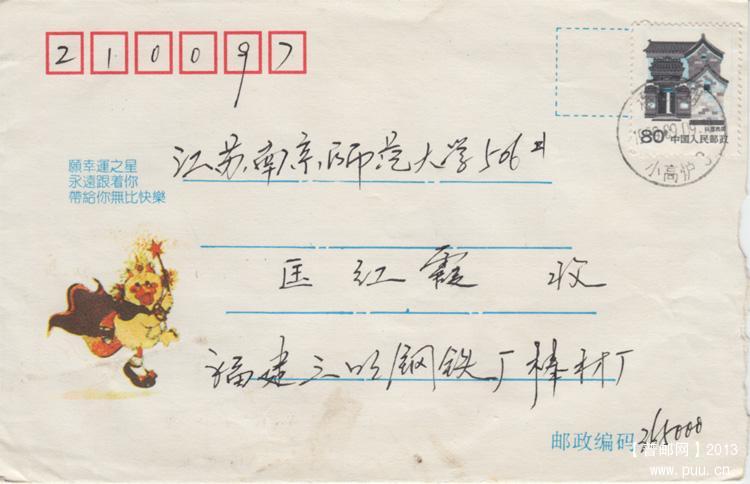 210097
80 中国人民邮政
小高炉
江苏南京师范大学506#
願幸運之星
永遠跟着你
帶給你無比快樂
匡红霞 收
福建三明钢铁厂棒材厂
邮政编码 365000
【普邮网】2013
www.puu.cn